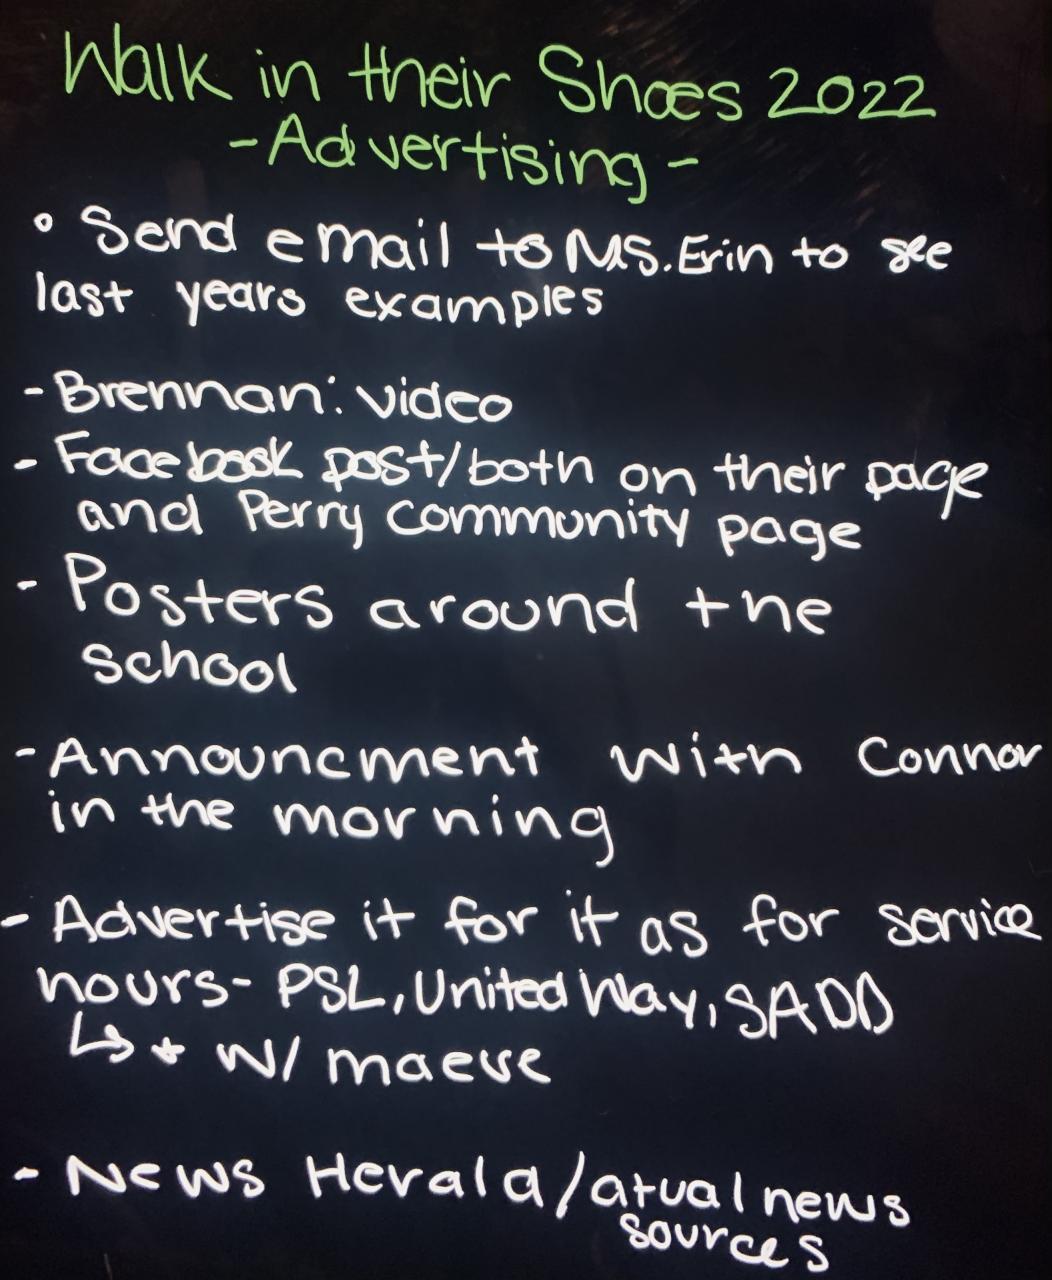 Walk in their Shoes 2022
- Advertising -
° Send email to Ms. Erin to see
last years examples
- Brennan: video
- Facebook post/both on their page
and Perry community page
- Posters around the
school
- Announcment with Connor
in the morning
- Advertise it for it as for service
hours- PSL, United Way, SADD
↳ * w/ maeve
- News Herald/atual news
sources